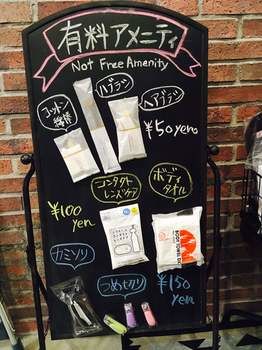 有料アメニティ
Not Free Amenity
コットン
綿棒
ハブラシ
ヘアブラシ
¥50yen
コンタクト
レンズケア
ボディ
タオル
¥100
yen
BODY TOWEL
カミソリ
つめキリ
¥150
yen